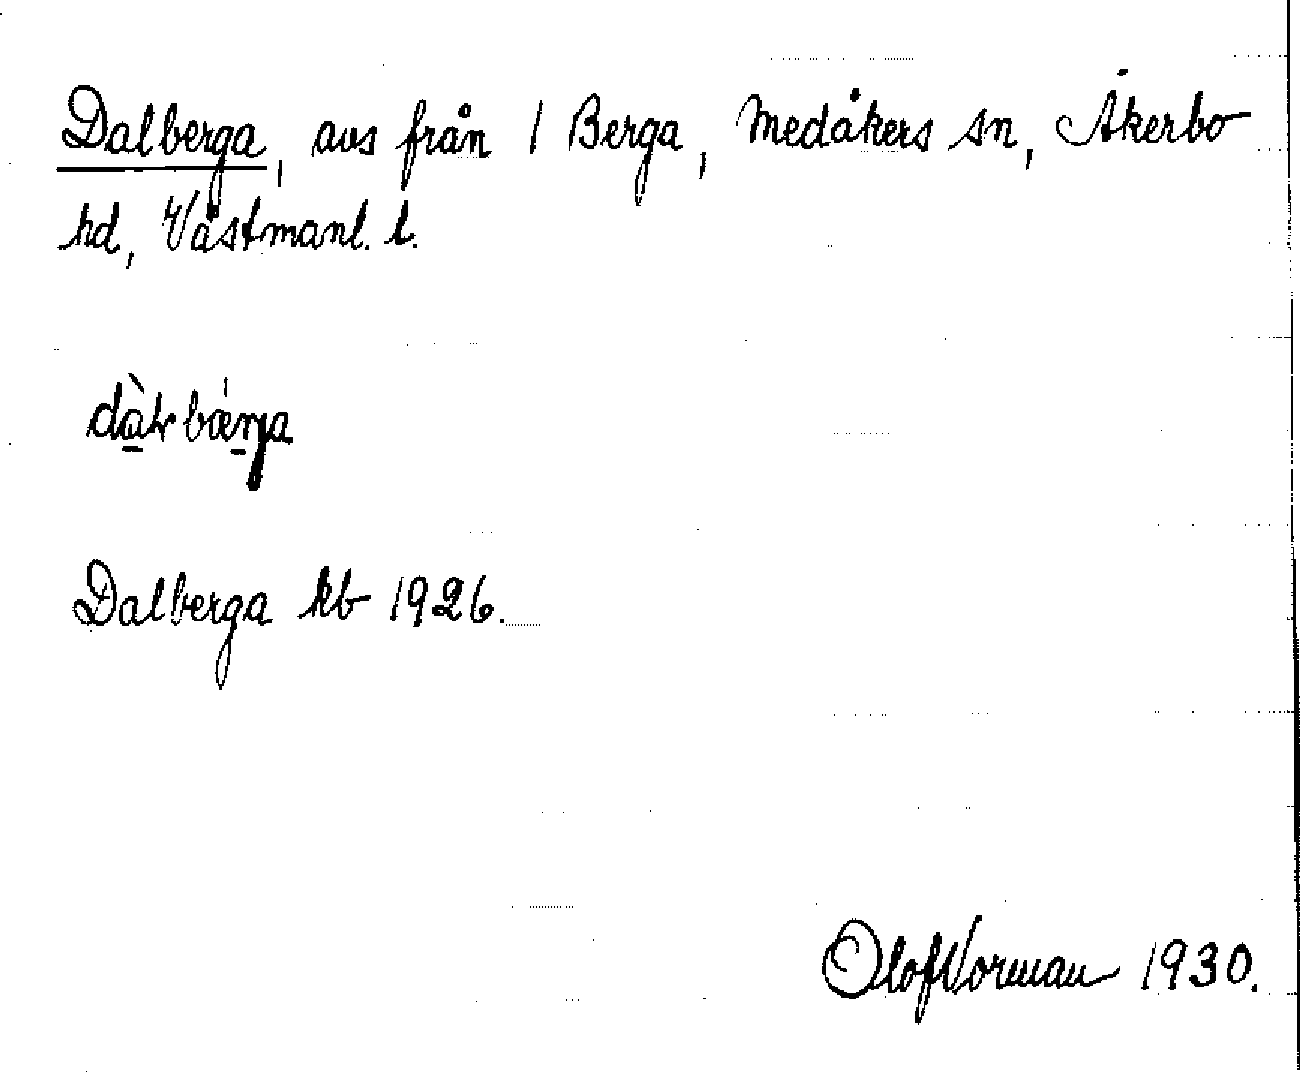 Dalberga, avs från 1 Berga, Medåkers sn, Åkerbo
hd, Västmanl. l.
Dalberga kb 1926.
Olof Norman 1930.